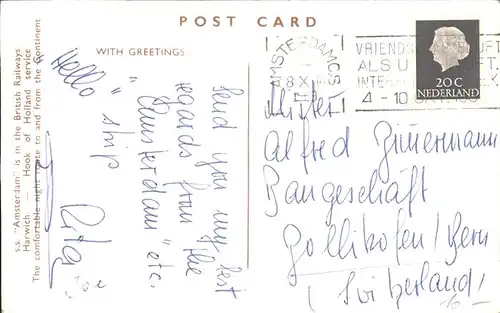 POST CARD
WITH GREETINGS
s.s. "Amsterdam" is in the British Railways
Harwich - Hook of Holland service
The comfortable night route to and from the Continent
Hello
send you my best
regards from the
"Amsterdam" etc.
" ship
AMSTERDAM CS
8 X
VRIENDS
ALS U
4 - 10
20 C
NEDERLAND
Mister
Alfred Zimmermann
Baugeschäft
Zollikofen/Bern
(Switzerland)
10.-